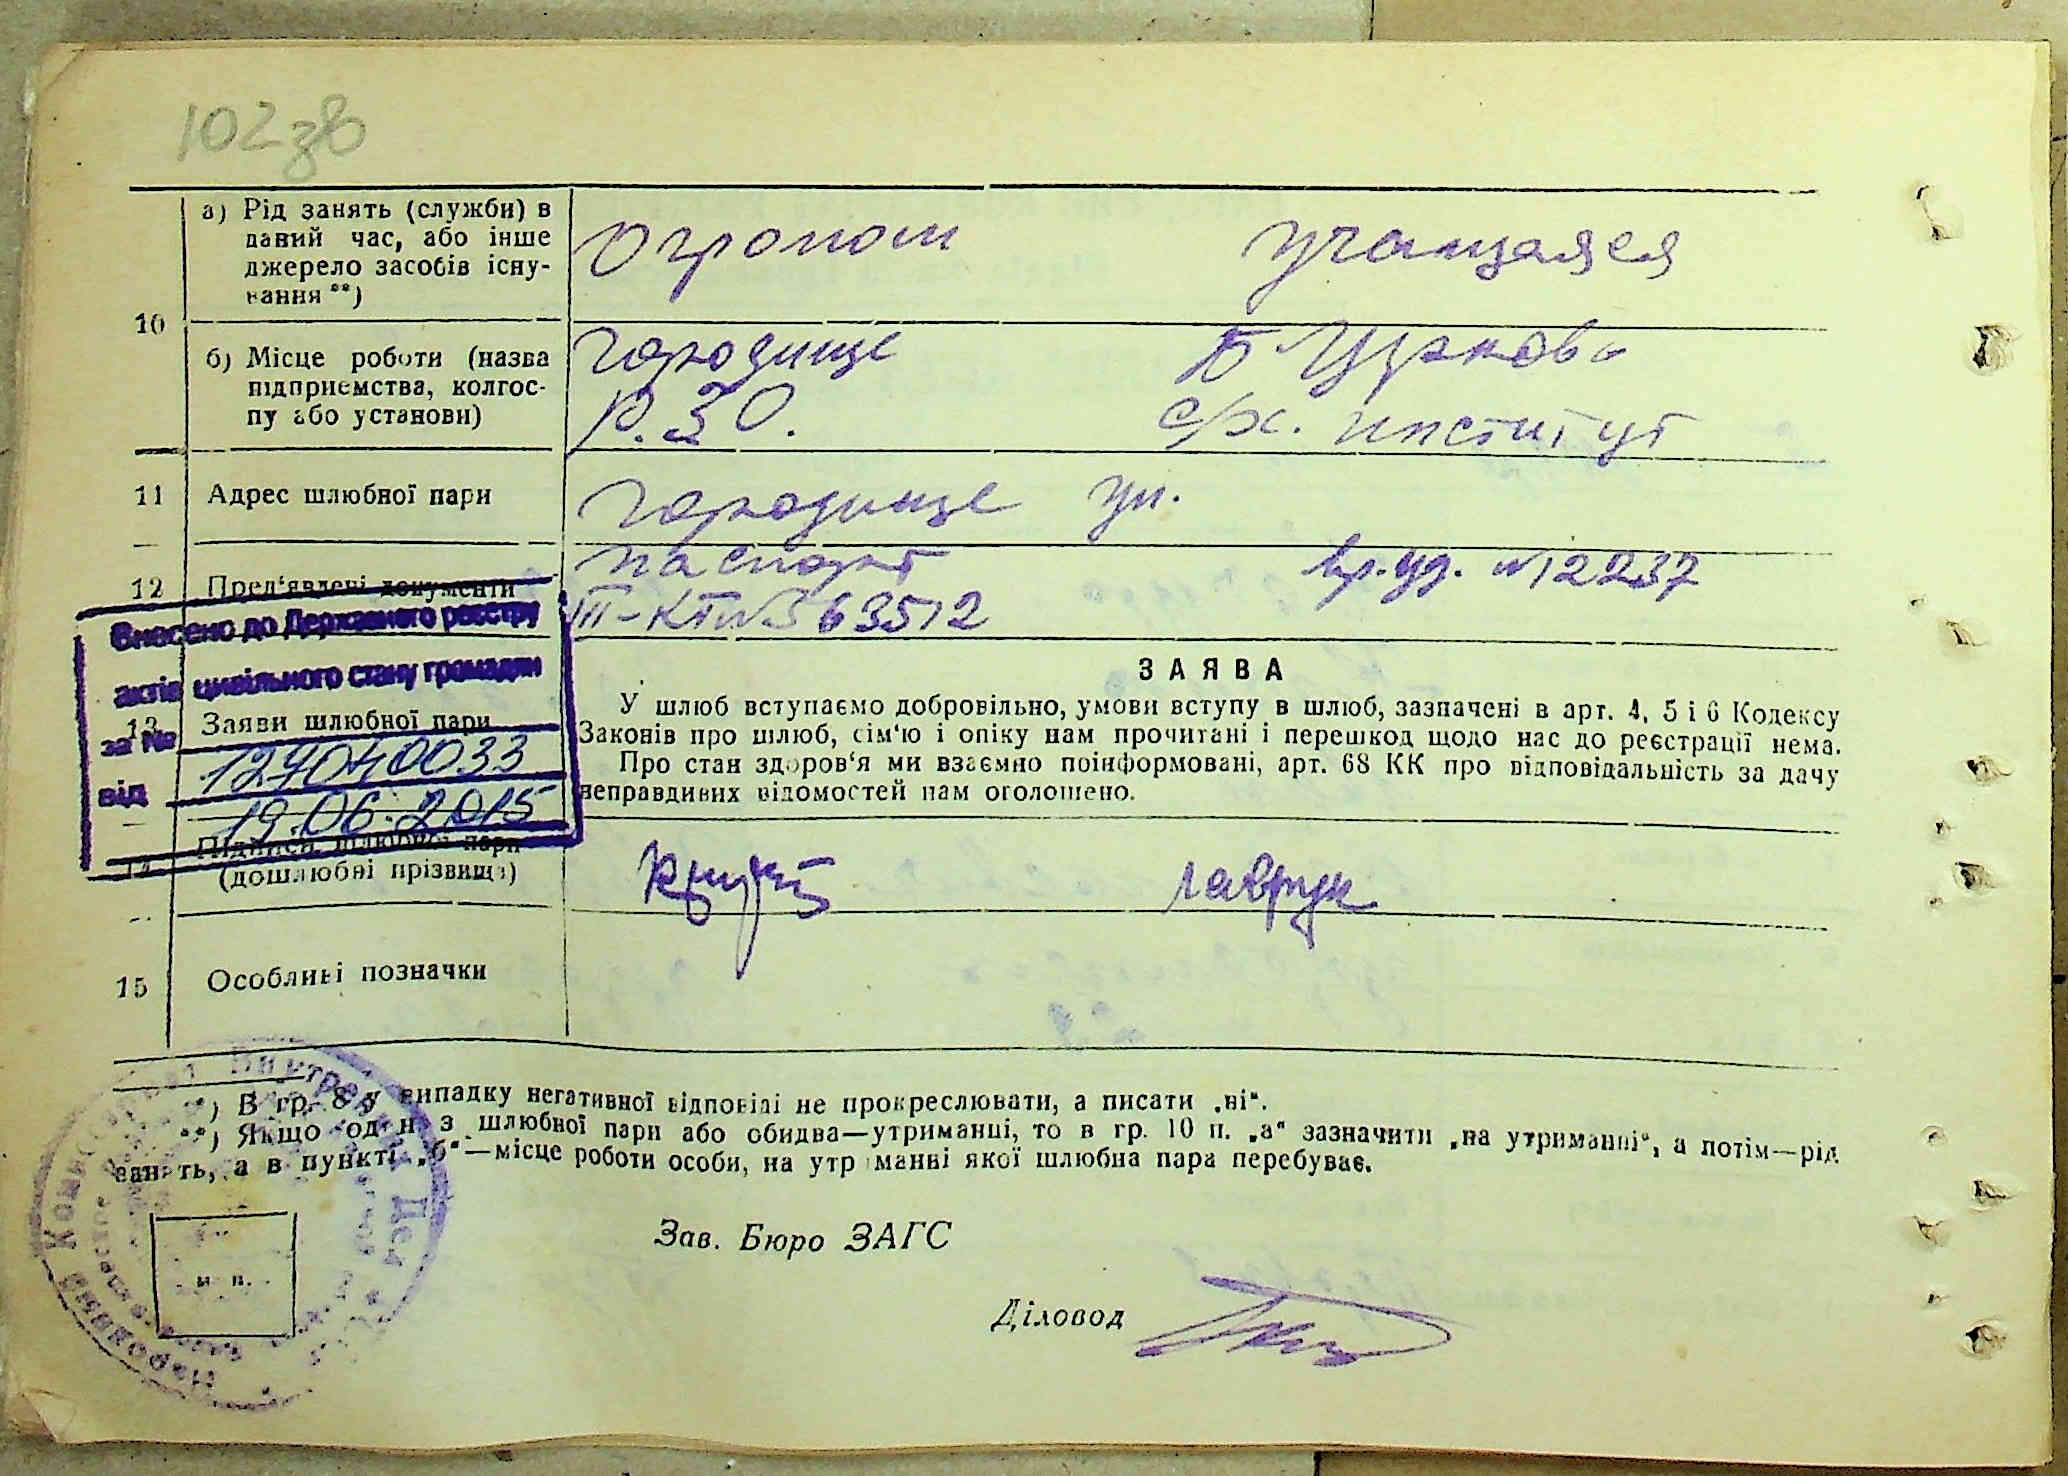 102зв
а) Рід занять (служби) в
даний час, або інше
джерело засобів існу-
вання **)
Огроном
учащаяся
10
б) Місце роботи (назва
підприємства, колгос-
пу або установи)
Городище
Р.З О.
Б Церковь
с/х. институт
11
Адрес шлюбної пари
Городище ул.
12
Пред'явлені документи
паспорт
III-КТ №563512
вр. уд. №12237
Внесено до Державного реєстру
актів цивільного стану громадян
за №
1270400033
від
19.06.2015
13
Заяви шлюбної пари
ЗАЯВА
У шлюб вступаємо добровільно, умови вступу в шлюб, зазначені в арт. 4, 5 і 6 Кодексу
Законів про шлюб, сім'ю і опіку нам прочитані і перешкод щодо нас до реєстрації нема.
Про стан здоров'я ми взаємно поінформовані, арт. 68 КК про відповідальність за дачу
неправдивих відомостей нам оголошено.
14
Підписи шлюбної пари
(дошлюбні прізвища)
Лаврук
15
Особливі позначки
*) В гр. 8 у випадку негативної відповіді не прокреслювати, а писати „ні“.
**) Якщо один з шлюбної пари або обидва—утриманці, то в гр. 10 п. „а“ зазначити „на утриманні“, а потім—рід
занять, а в пункті „б“—місце роботи особи, на утриманні якої шлюбна пара перебуває.
Народный Комиссариат Внутренних Дел
м. п.
Зав. Бюро ЗАГС
Діловод